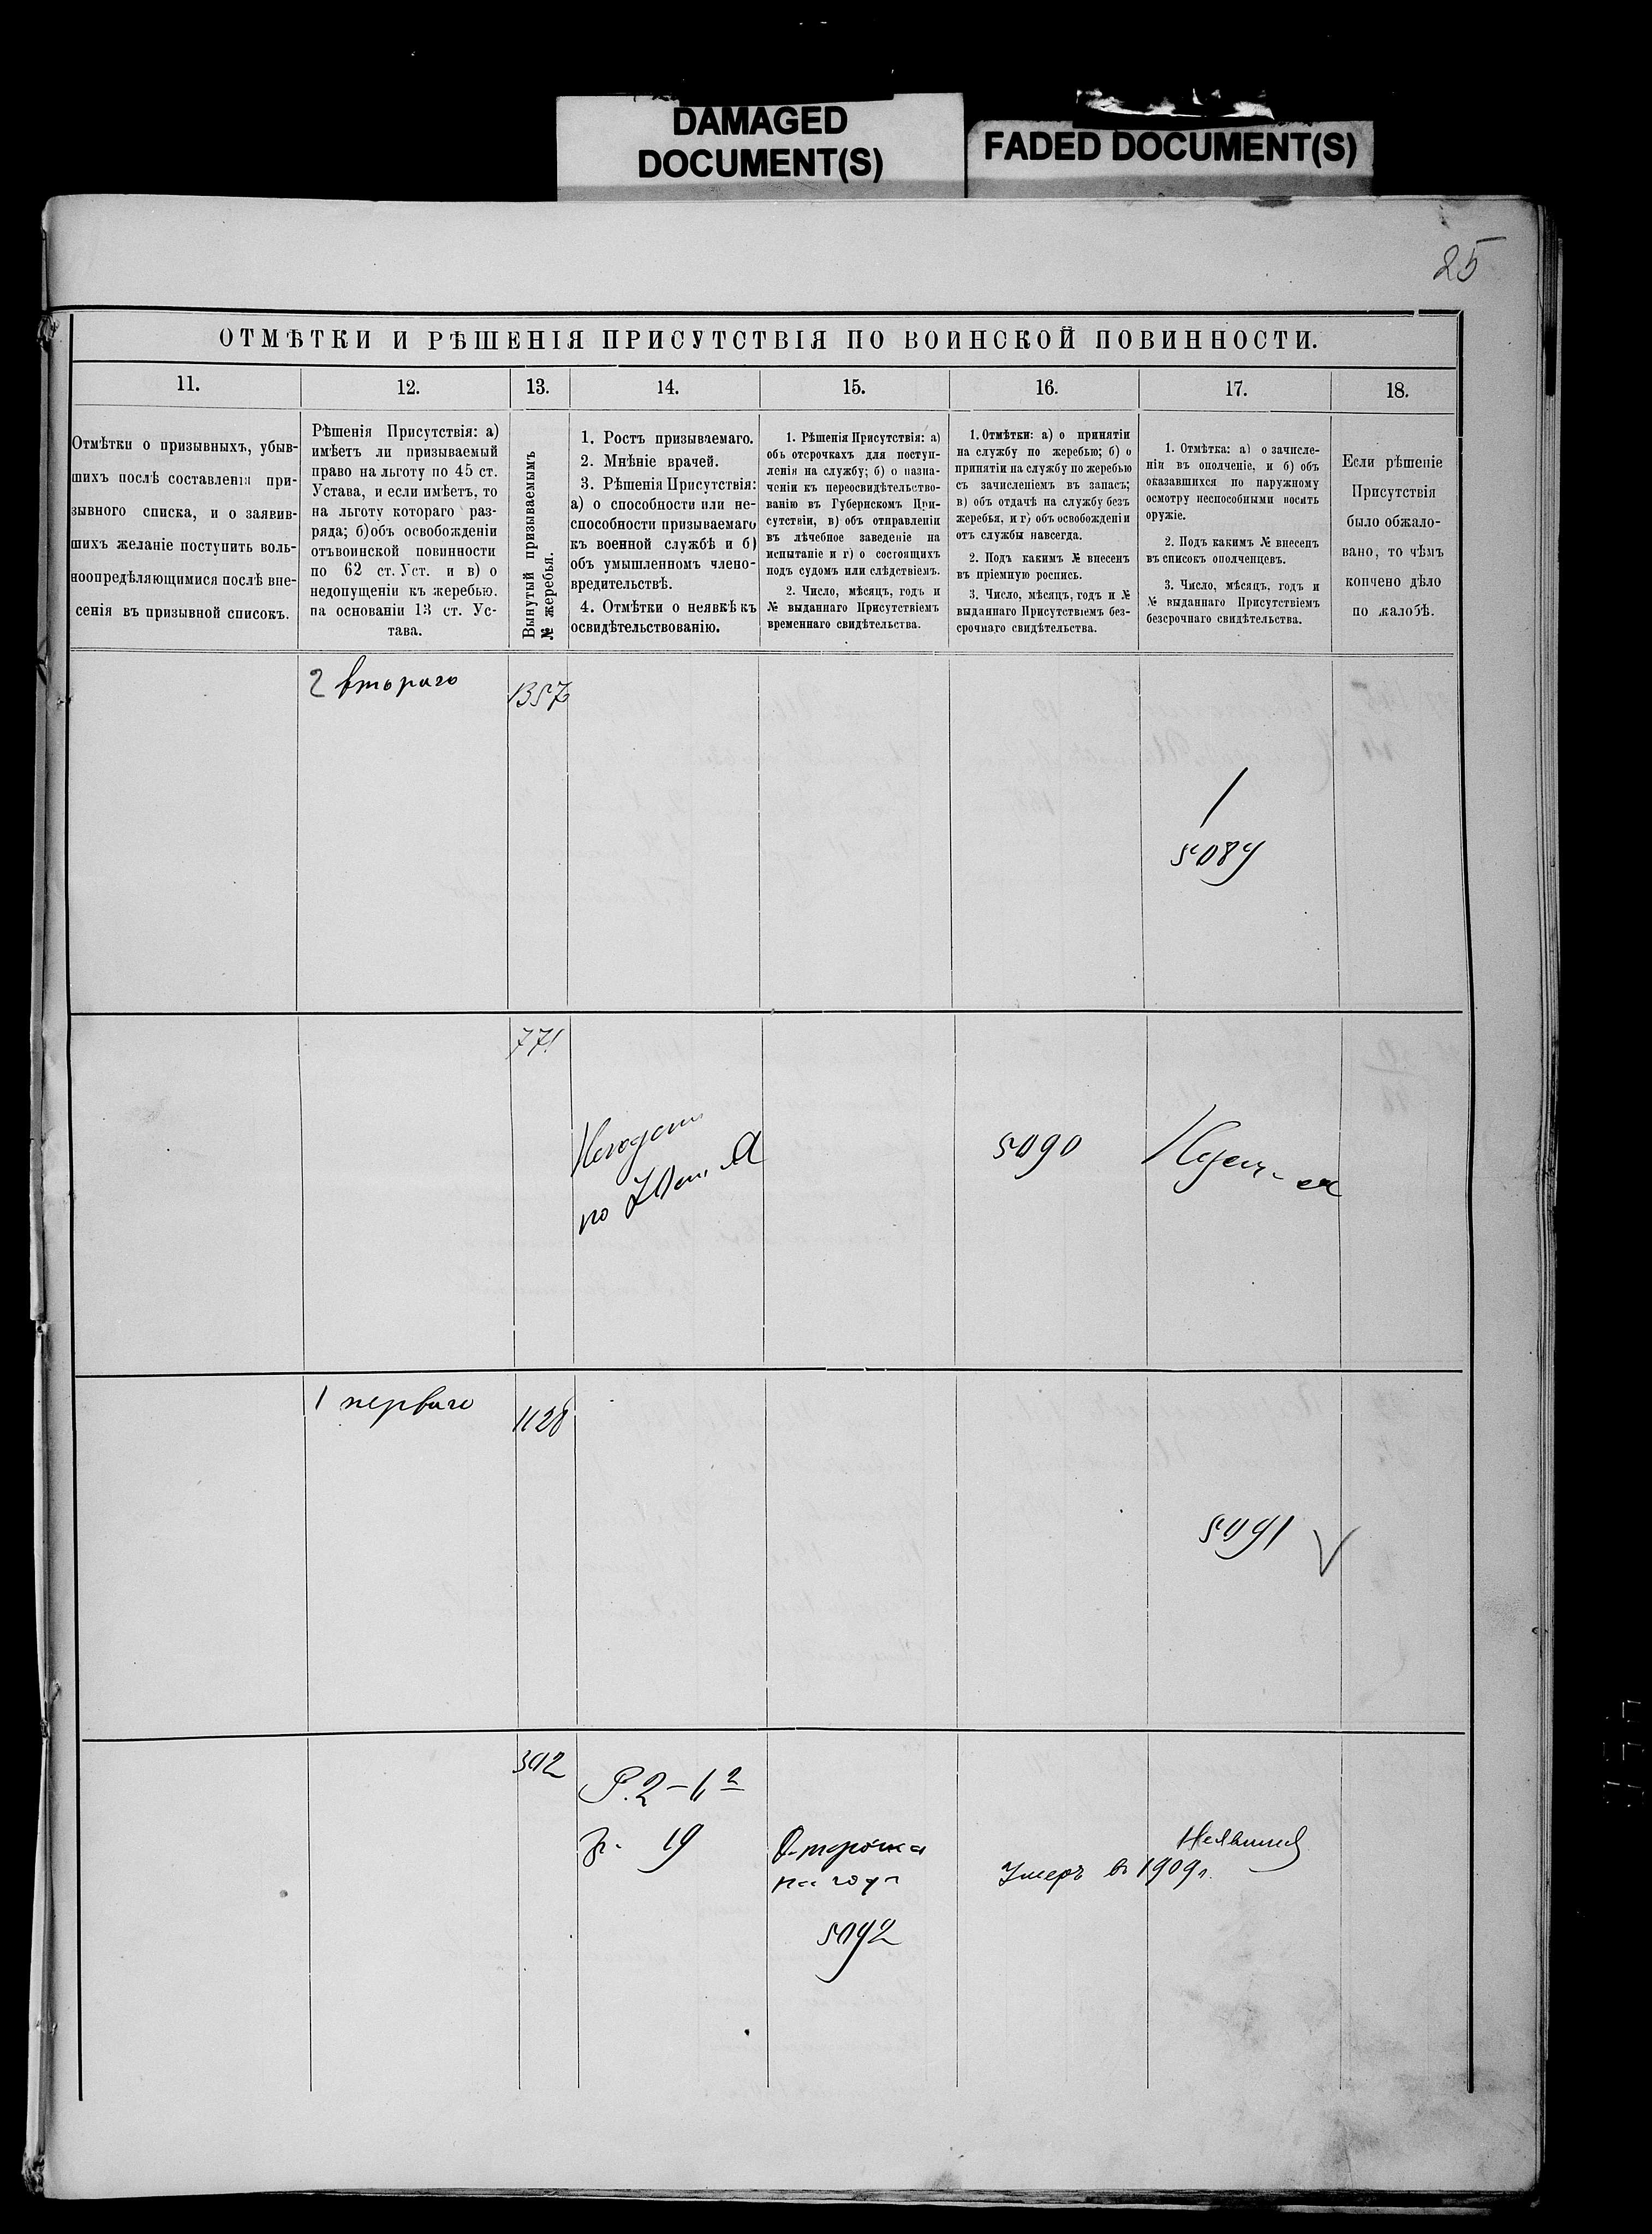 DAMAGED
DOCUMENT(S)
FADED DOCUMENT(S)
25
ОТМѢТКИ И РѢШЕНІЯ ПРИСУТСТВІЯ ПО ВОИНСКОЙ ПОВИННОСТИ.
11.
12.
13.
14.
15.
16.
17.
18.
Отмѣтки о призывныхъ, убыв-
шихъ послѣ составленія при-
зывного списка, и о заявив-
шихъ желаніе поступить воль-
ноопредѣляющимися послѣ вне-
сенія въ призывной списокъ.
Рѣшенія Присутствія: а)
имѣетъ ли призываемый
право на льготу по 45 ст.
Устава, и если имѣетъ, то
на льготу котораго раз-
ряда; б) объ освобожденіи
отъ воинской повинности
по 62 ст. Уст. и в) о
недопущеніи къ жеребью.
на основаніи 13 ст. Ус-
тава.
Вынутый призываемымъ
№ жеребья.
1. Ростъ призываемаго.
2. Мнѣніе врачей.
3. Рѣшенія Присутствія:
а) о способности или не-
способности призываемаго
къ военной службѣ и б)
объ умышленномъ члено-
вредительствѣ.
4. Отмѣтки о неявкѣ къ
освидѣтельствованію.
1. Рѣшенія Присутствія: а)
объ отсрочкахъ для поступ-
ленія на службу; б) о назна-
ченіи къ переосвидѣтельство-
ванію въ Губернскомъ При-
сутствіи, в) объ отправленіи
въ лѣчебное заведеніе на
испытаніе и г) о состоящихъ
подъ судомъ или слѣдствіемъ.
2. Число, мѣсяцъ, годъ и
№ выданнаго Присутствіемъ
временнаго свидѣтельства.
1. Отмѣтки: а) о принятіи
на службу по жеребью; б) о
принятіи на службу по жеребью
съ зачисленіемъ въ запасъ;
в) объ отдачѣ на службу безъ
жеребья, и г) объ освобожденіи
отъ службы навсегда.
2. Подъ какимъ № внесенъ
въ пріемную роспись.
3. Число, мѣсяцъ, годъ и №
выданнаго Присутствіемъ без-
срочнаго свидѣтельства.
1. Отмѣтка: а) о зачисле-
ніи въ ополченіе, и б) объ
оказавшихся по наружному
осмотру неспособными носить
оружіе.
2. Подъ какимъ № внесенъ
въ списокъ ополченцевъ.
3. Число, мѣсяцъ, годъ и
№ выданнаго Присутствіемъ
безсрочнаго свидѣтельства.
Если рѣшеніе
Присутствія
было обжало-
вано, то чѣмъ
кончено дѣло
по жалобѣ.
2 втораго
1357
5089
771
Негоденъ
по
5090
1 перваго
1128
5091
392
Р. 2-1 2
19
Отсрочка
на годъ
5092
Неявился
Умеръ въ 1909 г.